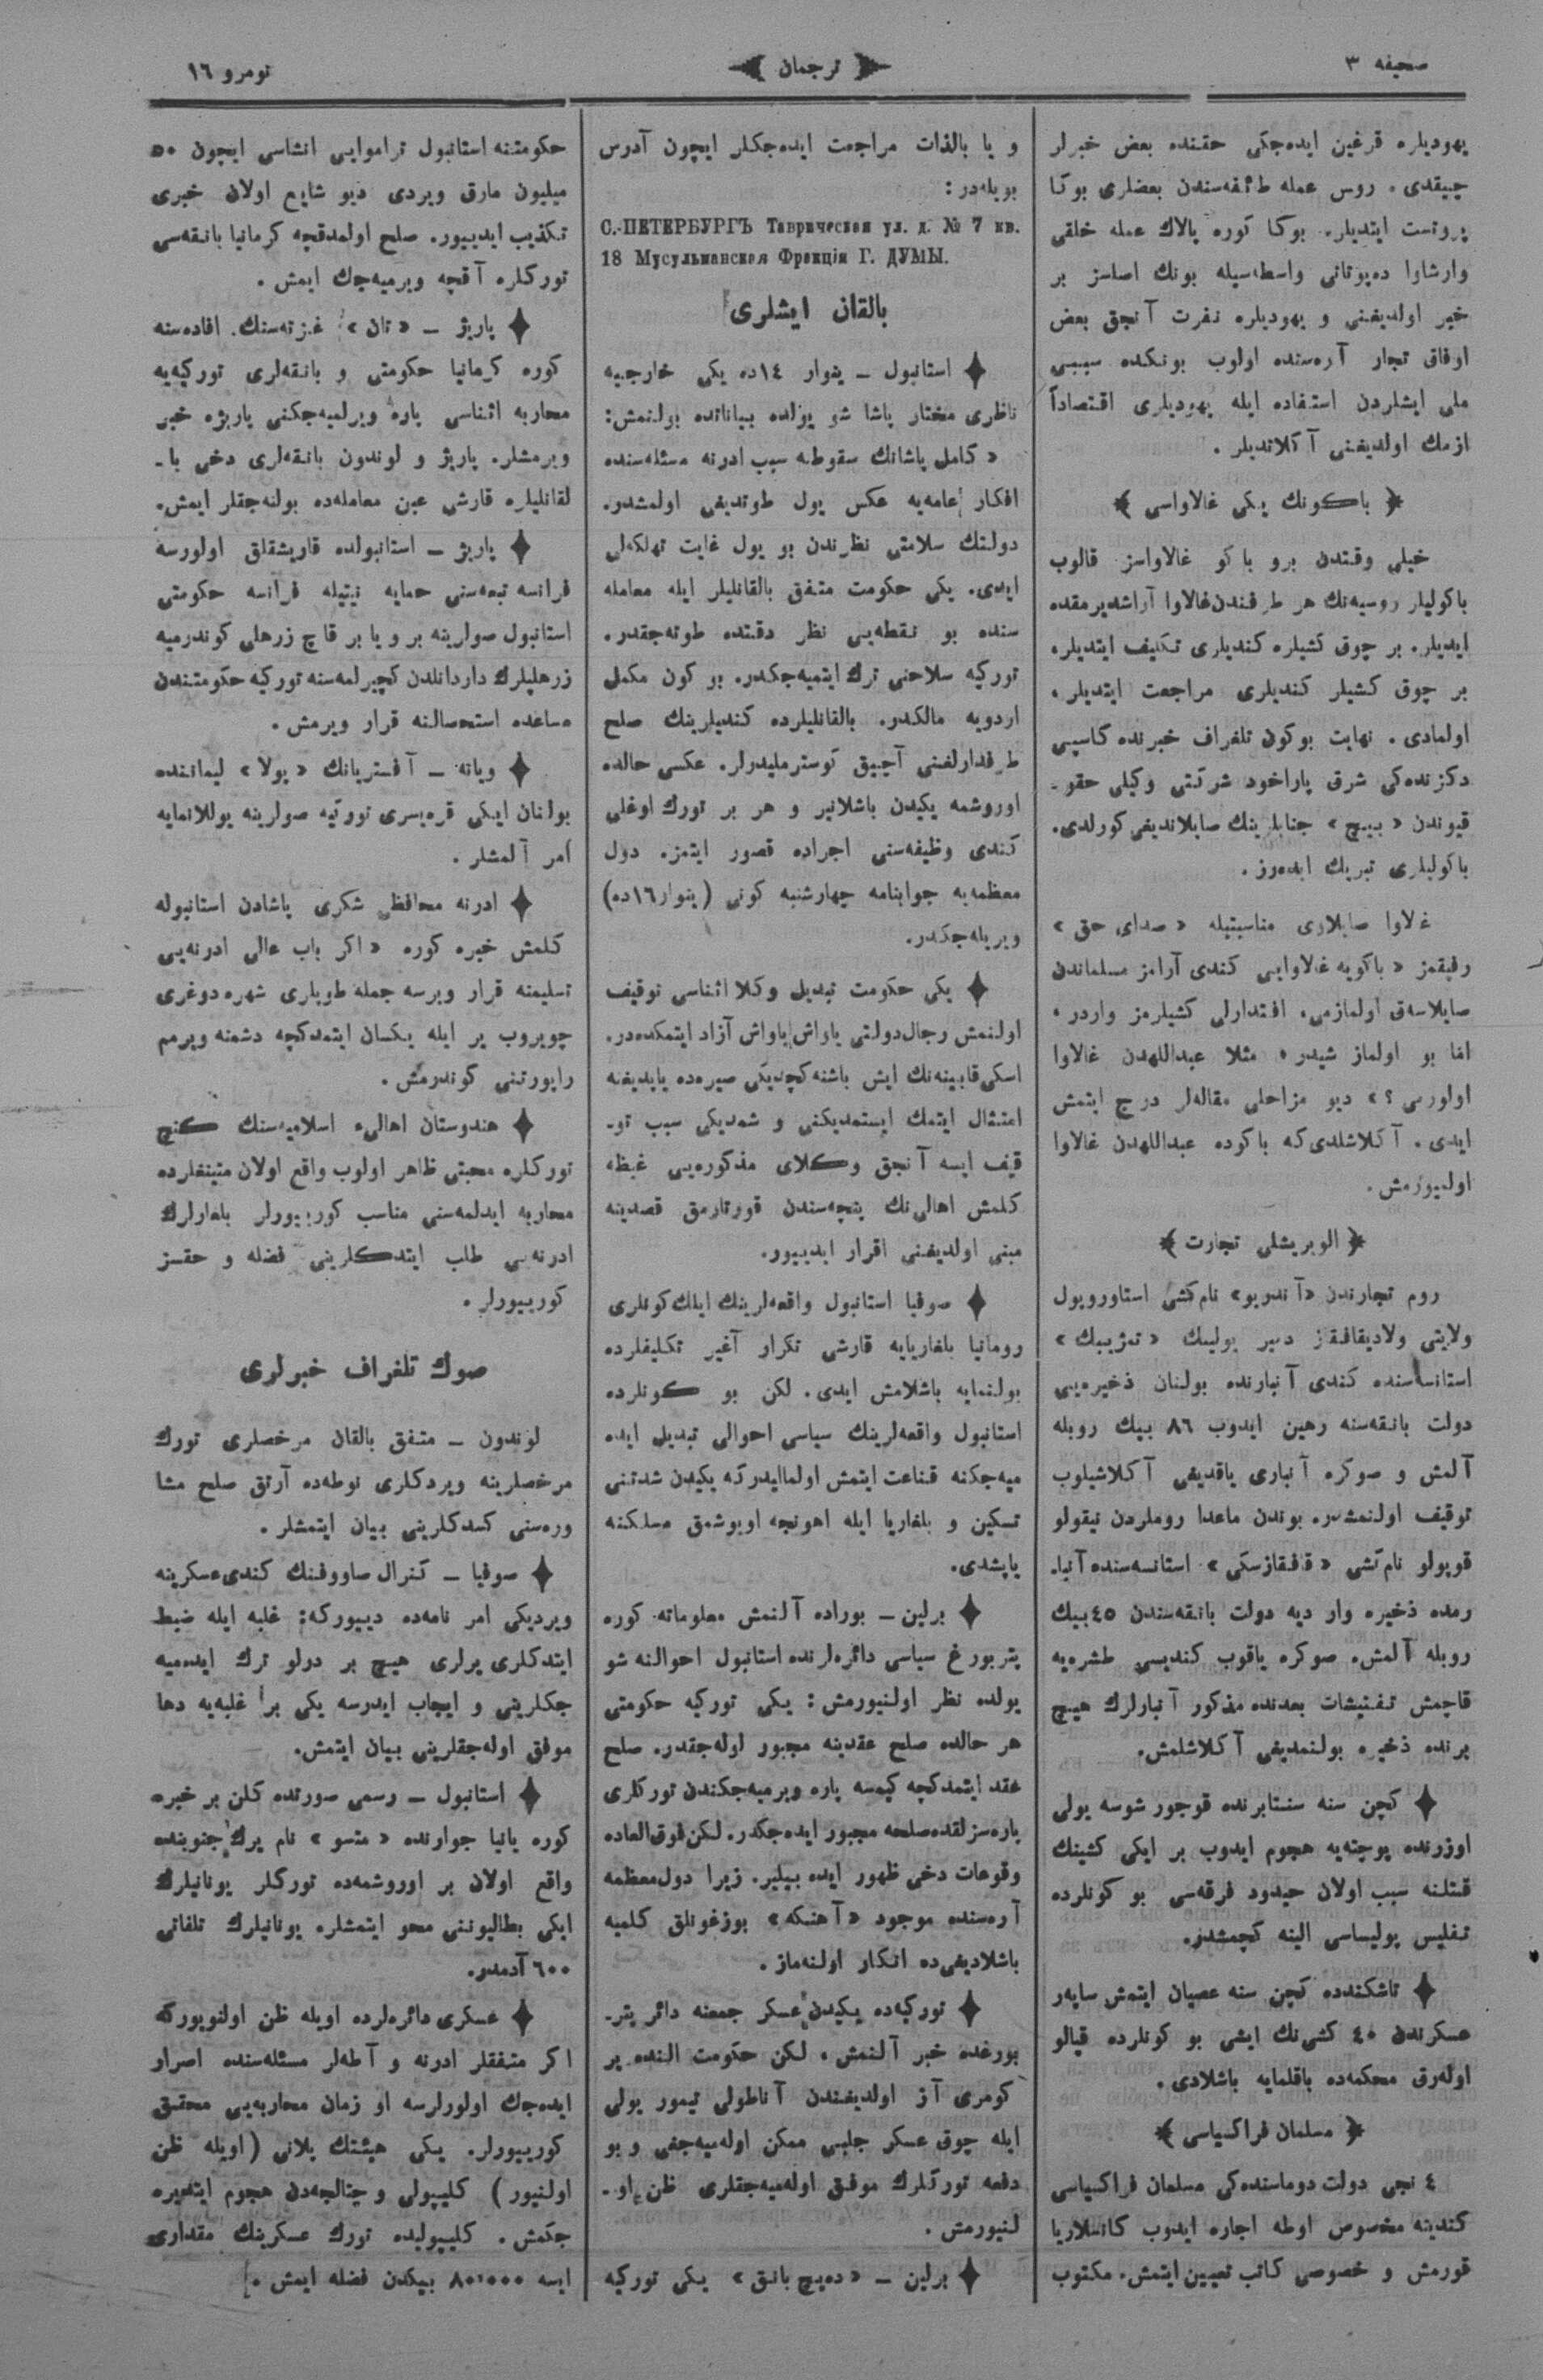 صحيفه ٣
ترجمان
نومرو ١٦
يهوديلره قرغين ايده‌جكى حقنده بعض خبرلر
چيقدى. روس عمله طائفه‌سندن بعضلرى بوكا
پروتست ايتديلر. بوكا كوره يالاك عمله خلقى
وارشاوا ده‌پوتاتى واسطه‌سيله بونك اصلسز بر
خبر اولديغنى و يهوديلره نفرت آنجق بعض
اوفاق تجار آره‌سنده اولوب بونكده سببى
ملى ايشلردن استفاده ايله يهوديلرى اقتصاداً
ازمك اولديغنى آكلاتديلر.
﴿ باكونك يكى غالاواسى ﴾
خيلى وقتدن برو باكو غالاواسز قالوب
باكوليلر روسيه‌نك هر طرفندن غالاوا آراشديرمقده
ايديلر. بر چوق كشيلره كنديلرى تكليف ايتديلر.
بر چوق كشيلر كنديلرى مراجعت ايتديلر.
اولمادى. نهايت بوكون تلغراف خبرنده كاسپى
دكزنده‌كى شرق پاراخود شركتى وكيلى حقو-
قيوندن « بيچ » جنابلرينك صايلانديغى كورلدى.
باكوليلرى تبريك ايده‌رز.
غلاوا صايلارى مناسبتيله « صداى حق »
رفيقمز « باكويه غالاوايى كندى آرامز مسلماندن
صايلاسه‌ق اولمازمى. اقتدارلى كشيلرمز واردر.
اما بو اولماز شيدر. مثلا عبداللهدن غالاوا
اولورمى ؟ » ديو مزاحلى مقاله‌لر درج ايتمش
ايدى. آكلاشلدى كه باكوده عبداللهدن غالاوا
اوليورمش.
﴿ الويريشلى تجارت ﴾
روم تجارندن «آندويو» نام كشى استاوروپول
ولايتى ولاديقافقز دمير يولينك « تمژيبك »
استانساسنده كندى آنبارنده بولنان ذخيره‌يى
دولت بانقه‌سنه رهين ايدوب ٨٦ بيك روبله
آلمش و صوكره آنبارى ياقديغى آكلاشيلوب
توقيف اولنمشدر. بوندن ماعدا روملردن نيقولو
قوپولو نام كشى « قافقازسكى » استانسه‌سنده آنبا-
رمده ذخيره وار ديه دولت بانقه‌سندن ٤٥ بيك
روبله آلمش. صوكره ياقوب كنديسى طشره‌يه
قاچمش تفتيشات بعدنده مذكور آنبارلرك هيچ
برنده ذخيره بولنمديغى آكلاشلمش.
✦ كچن سنه سنتابرنده قوجور شوسه يولى
اوزرنده پوچته‌يه هجوم ايدوب بر ايكى كشينك
قتلنه سبب اولان حيدود فرقه‌سى بو كونلرده
تفليس پوليساسى الينه كچمشدر.
✦ تاشكندده كچن سنه عصيان ايتمش ساپه‌ر
عسكرندن ٤٠ كشى‌نك ايشى بو كونلرده قپالو
اوله‌رق محكمه‌ده باقلمايه باشلادى.
﴿ مسلمان فراكسياسى ﴾
٤ نجى دولت دوماسنده‌كى مسلمان فراكسياسى
كندينه مخصوص اوطه اجاره ايدوب كانسلاريا
قورمش و خصوصى كاتب تعيين ايتمش. مكتوب
و يا بالذات مراجعت ايده‌جكلر ايچون آدرس
بويله‌در :
С.-ПЕТЕРБУРГЪ Таврическая ул. д. № 7 кв.
18 Мусульманская Фракція Г. ДУМЫ.
بالقان ايشلرى
✦ استانبول – ينوار ١٤ده يكى خارجيه
ناظرى مختار پاشا شو يولده بياناتده بولنمش:
« كامل پاشانك سقوطنه سبب ادرنه مسئله‌سنده
افكار عامه‌يه عكس يول طوتديغى اولمشدر.
دولتك سلامتى نظرندن بو يول غايت تهلكه‌لى
ايدى. يكى حكومت متفق بالقانليلر ايله معامله
سنده بو نقطه‌يى نظر دقتده طوته‌جقدر.
توركيه سلاحنى ترك ايتميه‌جكدر. بو كون مكمل
اردويه مالكدر. بالقانليلرده كنديلرينك صلح
طرفدارلغنى آچيق كوسترمليدرلر. عكسى حالده
اوروشمه يكيدن باشلانير و هر بر تورك اوغلى
كندى وظيفه‌سنى اجراده قصور ايتمز. دول
معظمه‌يه جوابنامه چهارشنبه كونى (ينوار١٦ده)
ويريله‌جكدر.
✦ يكى حكومت تبديل وكلا اثناسى توقيف
اولنمش رجال دولتى ياواش ياواش آزاد ايتمكده‌در.
اسكى قابينه‌نك ايش باشنه كچديكى صيره‌ده ياپديغنه
امتثال ايتمك ايستمديكنى و شمديكى سبب تو-
قيف ايسه آنجق وكلاى مذكوره‌يى غيظه
كلمش اهالى‌نك پنچه‌سندن قورتارمق قصدينه
مبنى اولديغنى اقرار ايدييور.
✦ صوفيا استانبول واقعه‌لرينك ايلك كونلرى
رومانيا بلغاريايه قارشى تكرار آغير تكليفلرده
بولنمايه باشلامش ايدى. لكن بو كونلرده
استانبول واقعه‌لرينك سياسى احوالى تبديل ايده
ميه‌جكنه قناعت ايتمش اولماليدركه يكيدن شدتنى
تسكين و بلغاريا ايله اهونجه اويوشمق مسلكنه
ياپشدى.
✦ برلين – بوراده آلنمش معلوماته كوره
پتربورغ سياسى دائره‌لرنده استانبول احوالنه شو
يولده نظر اولنيورمش : يكى توركيه حكومتى
هر حالده صلح عقدينه مجبور اوله‌جقدر. صلح
عقد ايتمدكچه كيمسه پاره ويرميه‌جكندن توركلرى
پاره‌سزلقده صلحه مجبور ايده‌جكدر. لكن فوق العاده
وقوعات دخى ظهور ايده بيلير. زيرا دول معظمه
آره‌سنده موجود « آهنكه » بوزغونلق كلميه
باشلاديغى‌ده انكار اولنه‌ماز.
✦ توركيه‌ده يكيدن عسكر جمعنه دائر پتر-
بورغده خبر آلنمش. لكن حكومت النده ير
كومرى آز اولديغندن آناطولى تيمور يولى
ايله چوق عسكر جلبى ممكن اوله‌ميه‌جغى و بو
دفعه توركلرك موفق اوله‌ميه‌جقلرى ظن او-
لنيورمش.
✦ برلين – « ده‌يچ بانق » يكى توركيه
حكومتنه استانبول تراموايى انشاسى ايچون ٥٠
ميليون مارق ويردى ديو شايع اولان خبرى
تكذيب ايدييور. صلح اولمدقچه كرمانيا بانقه‌سى
توركلره آقچه ويرميه‌جك ايمش.
✦ پاريژ – « تان » غزته‌سنك افاده‌سنه
كوره كرمانيا حكومتى و بانقه‌لرى توركيه‌يه
محاربه اثناسى پاره ويرلميه‌جكنى پاريژه خبر
ويرمشلر. پاريژ و لوندون بانقه‌لرى دخى با-
لقانليلره قارشى عين معامله‌ده بولنه‌جقلر ايمش.
✦ پاريژ – استانبولده قاريشقلق اولورسه
فرانسه تبعه‌سنى حمايه نيتيله فرانسه حكومتى
استانبول صولرينه بر و يا بر قاچ زرهلى كوندرميه
زرهليلرك داردانلدن كچيرلمه‌سنه توركيه حكومتندن
مساعده استحصالنه قرار ويرمش.
✦ ويانه – آفستريانك « پولا » ليماننده
بولنان ايكى قره‌يسرى توركيه صولرينه يوللانمايه
أمر آلمشلر.
✦ ادرنه محافظى شكرى پاشادن استانبوله
كلمش خبره كوره « اكر باب عالى ادرنه‌يى
تسليمنه قرار ويرسه جمله طوپلرى شهره دوغرى
چويروب ير ايله يكسان ايتمدكچه دشمنه ويرمم
راپورتنى كوندرمش.
✦ هندوستان اهالىء اسلاميه‌سنك كنچ
توركلره محبتى ظاهر اولوب واقع اولان متينغلرده
محاربه ايدلمه‌سنى مناسب كورييورلر بلغارلرك
ادرنه‌يى طلب ايتدكلرينى فضله و حقسز
كورييورلر.
صوك تلغراف خبرلرى
لوندون – متفق بالقان مرخصلرى تورك
مرخصلرينه ويردكلرى نوطه‌ده آرتق صلح مشا
وره‌سنى كسدكلرينى بيان ايتمشلر.
✦ صوفيا – كنرال صاووفنك كندى عسكرينه
ويرديكى امر نامه‌ده دييوركه: غلبه ايله ضبط
ايتدكلرى يرلرى هيچ بر دولو ترك ايده‌ميه
جكلرينى و ايجاب ايدرسه يكى بر غلبه‌يه دها
موفق اوله‌جقلرينى بيان ايتمش.
✦ استانبول – رسمى صورتده كلن بر خبره
كوره يانيا جوارنده « متسو » نام يرك جنوبنده
واقع اولان بر اوروشمه‌ده توركلر يونانيلرك
ايكى بطاليوننى محو ايتمشلر. يونانيلرك تلفاتى
٦٠٠ آدمدر.
✦ عسكرى دائره‌لرده اويله ظن اولنويوركه
اكر متفقلر ادرنه و آطه‌لر مسئله‌سنده اصرار
ايده‌جك اولورلرسه او زمان محاربه‌يى محقق
كورييورلر. يكى هيئتك پلانى (اويله ظن
اولنيور) كليپولى و چتالجه‌دن هجوم ايتديره
جكمش. كليپوليده تورك عسكرينك مقدارى
ايسه ٨٠،٠٠٠ بيكدن فضله ايمش.